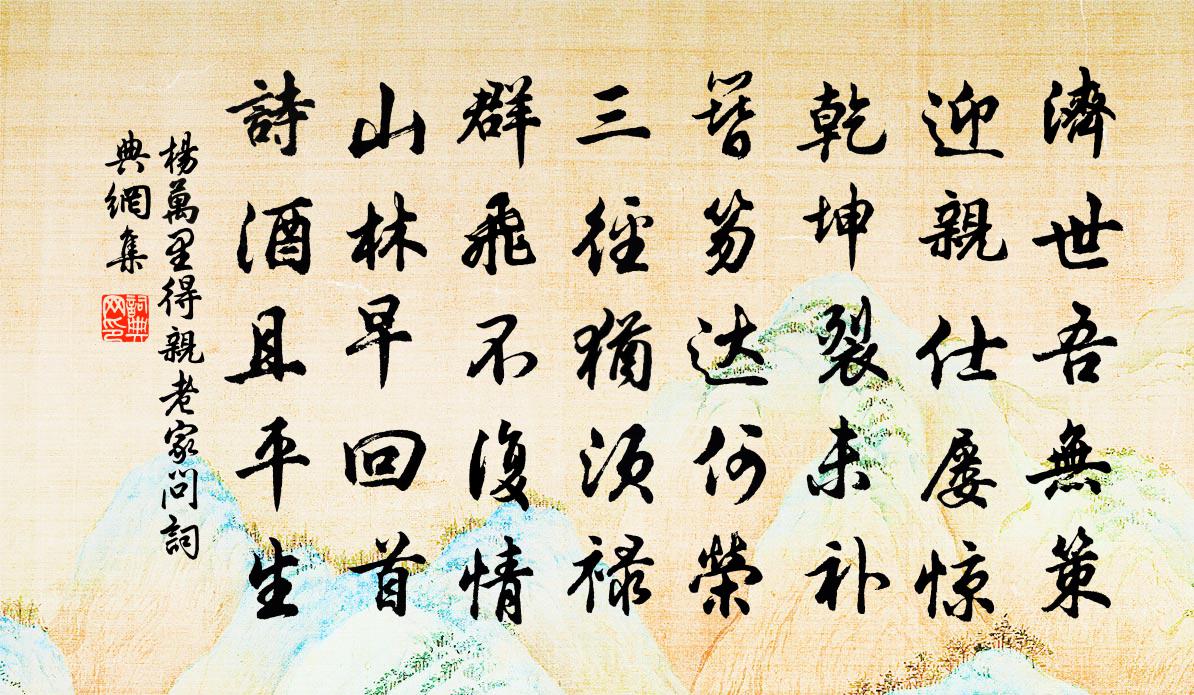 濟世吾無策
迎親仕屢惊
乾坤裂未补
簪笏达何榮
三徑猶須禄
群飛不復情
山林早回首
詩酒且平生
楊萬里得親老家問詞
典網集
詞典
网印